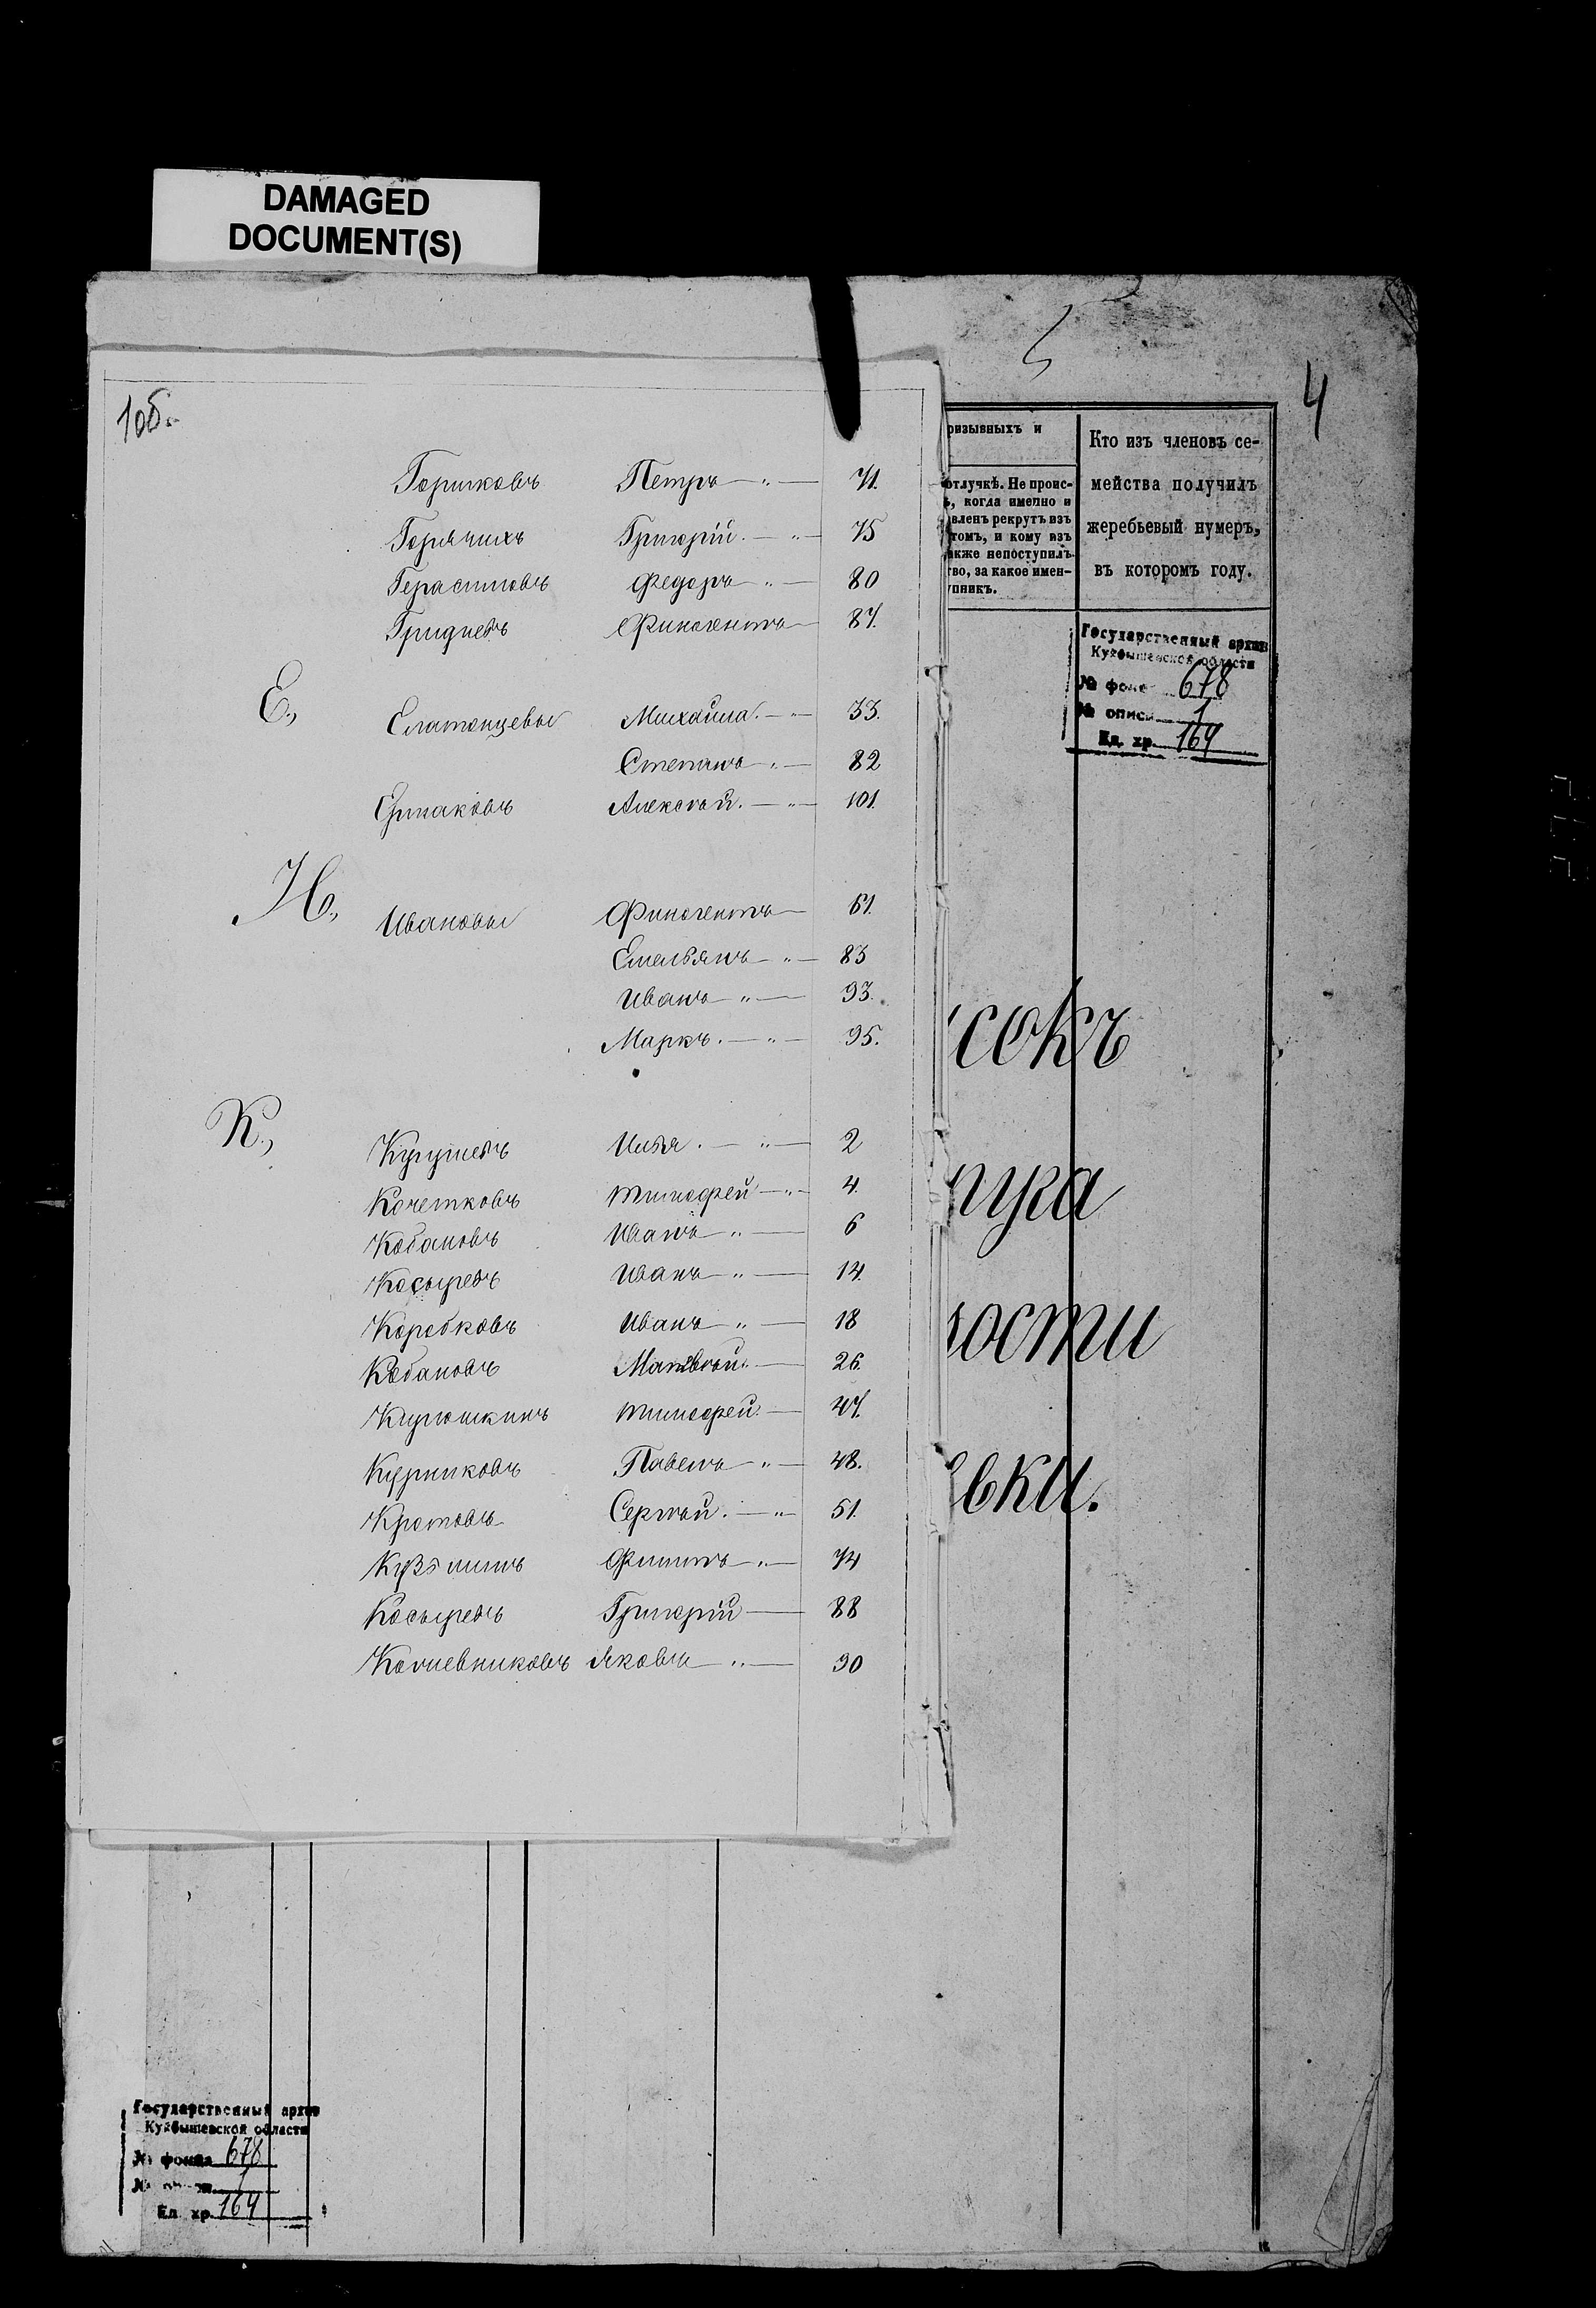 DAMAGED
DOCUMENT(S)
4
1об.
Горшковъ Петръ — " — 71.
Горячихъ Григорій. — " — 75
Герасимовъ Федоръ " — 80
Гридневъ Финогентъ — 87.
Е., Елатонцевы Михайла. — " — 33.
Степанъ " — 82
Ермаковъ Алексѣй. — " — 101.
И., Ивановы Финогентъ — 61.
Емельянъ — " — 83
Иванъ — " — 93.
Маркъ. — " — 95.
К., Илья. — " — 2
Кочетковъ Тимофей — " — 4.
Кобановъ Иванъ " — 6
Косыревъ Иванъ — " — 14.
Коробковъ Иванъ — " — 18
Кобановъ Матвѣй. — 26.
Тимофей. — 47.
Курниковъ Павелъ — " — 48.
Кротовъ Сергѣй. — " 51.
Кузминъ Филипъ — " — 74
Косыревъ Григорій — 88
Яковъ — " — 90
ризывныхъ и
отлучкѣ. Не проис-
ь, когда именно и
вленъ рекрутъ изъ
томъ, и кому изъ
кже непоступилъ
тво, за какое имен-
упникъ.
Кто изъ членовъ се-
мейства получилъ
жеребьевый нумеръ,
въ которомъ году.
Государственный архив
Куйбышевской области
№ фонда 678
№ описи 1
Ед. хр. 164
сокъ
ости
вки.
Государственный архив
Куйбышевской области
№ фонда 678
Ед. хр. 164